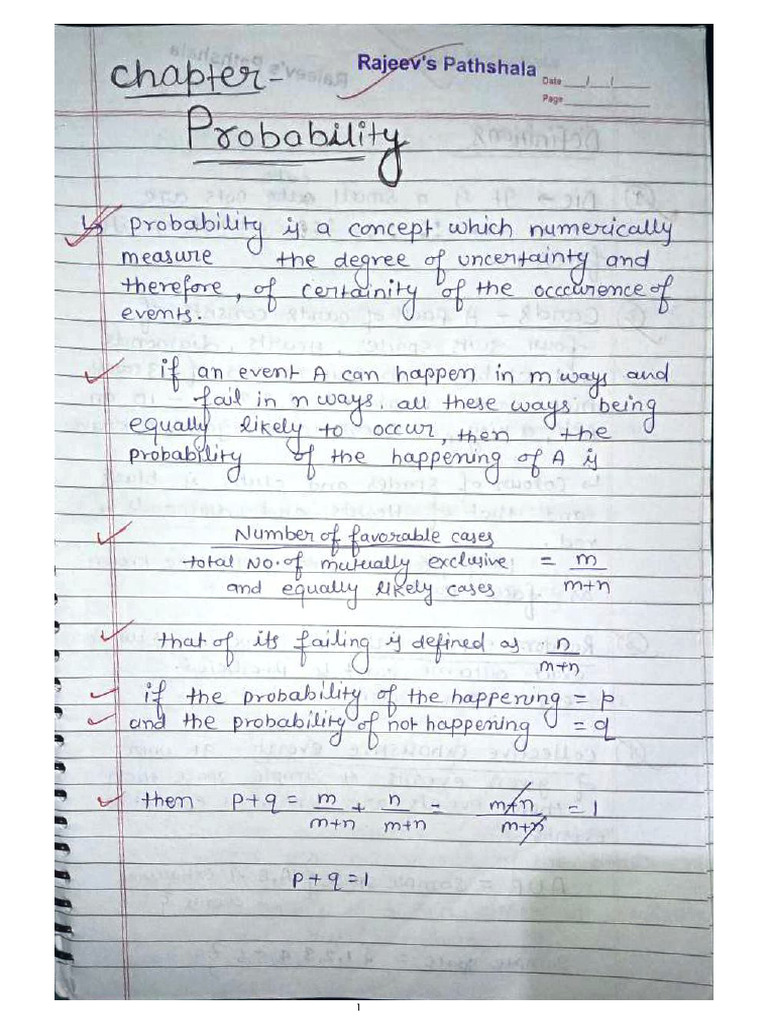 Rajeev's Pathshala
Date __/__/__
Page
chapter-
Probability
↳ probability is a concept which numerically
measure the degree of uncertainty and
therefore, of certainity of the occcurence of
events.
if an event A can happen in m ways and
fail in n ways. all these ways being
equally likely to occur, then the
probability of the happening of A is
Number of favorable cases
total No. of mutually exclusive = m
and equally likely cases m+n
that of its failing is defined as n
m+n
if the probability of the happening = p
and the probability of not happening = q
then p+q = m/m+n + n/m+n = m+n/m+n = 1
p+q=1
1